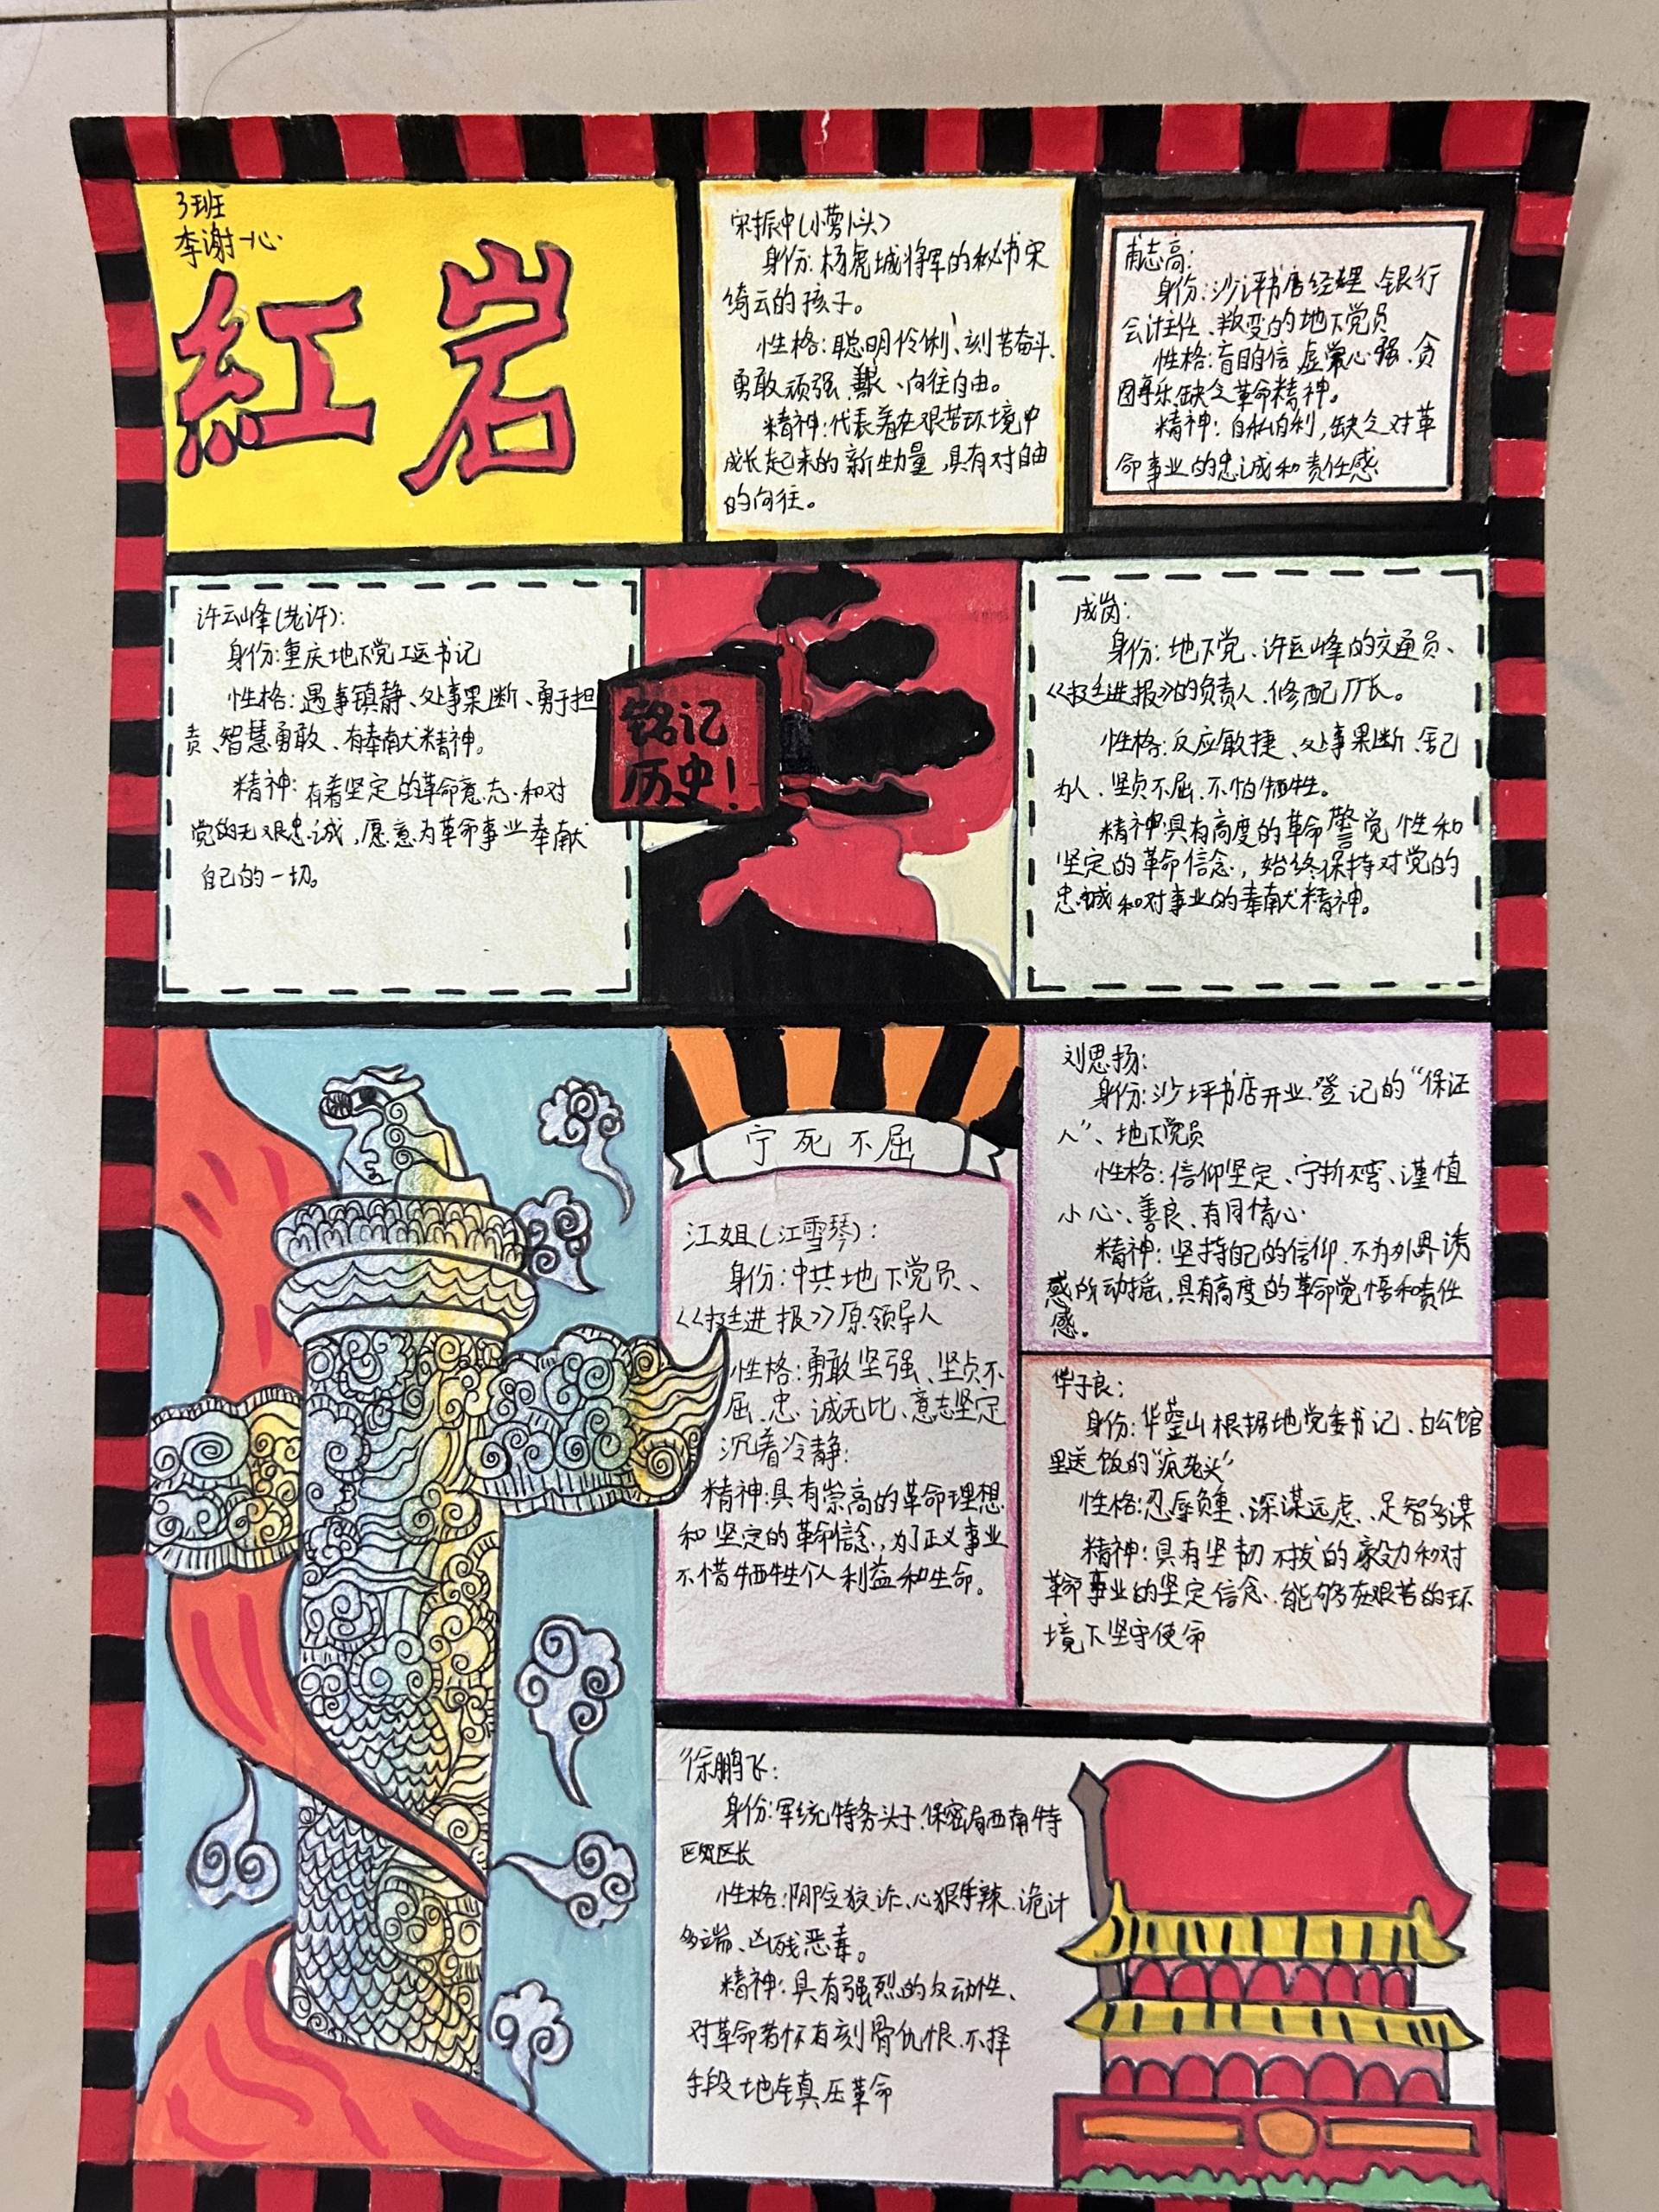 3班
李谢一心
紅岩
宋振中(小萝卜头)
身份:杨虎城将军的秘书宋
绮云的孩子。
性格:聪明伶俐、刻苦奋斗、
勇敢顽强、、向往自由。
精神:代表着在艰苦环境中
成长起来的新生力量,具有对自由
的向往。
甫志高:
身份:沙坪书店经理、银行
会计主任、叛变的地下党员
性格:盲目自信、虚荣心强、贪
图享乐、缺乏革命精神。
精神:自私自利,缺乏对革
命事业的忠诚和责任感
许云峰(老许):
身份:重庆地下党工运书记
性格:遇事镇静、处事果断、勇于担
责、智慧勇敢、有奉献精神。
精神:有着坚定的革命意志.和对
党的无限忠诚,愿意为革命事业奉献
自己的一切。
铭记
历史!
成岗:
身份:地下党、许云峰的交通员、
《挺进报》的负责人.修配厂长。
性格:反应敏捷、处事果断、舍己
为人、坚贞不屈.不怕牺牲。
精神:具有高度的革命警觉性和
坚定的革命信念,始终保持对党的
忠诚和对事业的奉献精神。
宁死不屈
江姐(江雪琴):
身份:中共地下党员、
《挺进报》原领导人
性格:勇敢坚强、坚贞不
屈.忠诚无比、意志坚定
沉着冷静:
精神:具有崇高的革命理想
和坚定的革命信念.,为了正义事业
不惜牺牲个人利益和生命。
刘思扬:
身份:沙坪书店开业.登记的“保证
人”、地下党员
性格:信仰坚定、宁折不弯、谨慎
小心、善良、有同情心.
精神:坚持自己的信仰.不为外界诱
惑所动摇,具有高度的革命觉悟和责任
感。
华子良:
身份:华蓥山根据地党委书记、白公馆
里送饭的“疯老头”
性格:忍辱负重、深谋远虑、足智多谋
精神:具有坚韧不拔的毅力和对
革命事业的坚定信念.能够在艰苦的环
境下坚守使命
徐鹏飞:
身份:军统特务头子.保密局西南特
区区长
性格:阴险狡诈、心狠手辣.诡计
多端、凶残恶毒。
精神:具有强烈的反动性、
对革命者怀有刻骨仇恨.不择
手段地镇压革命